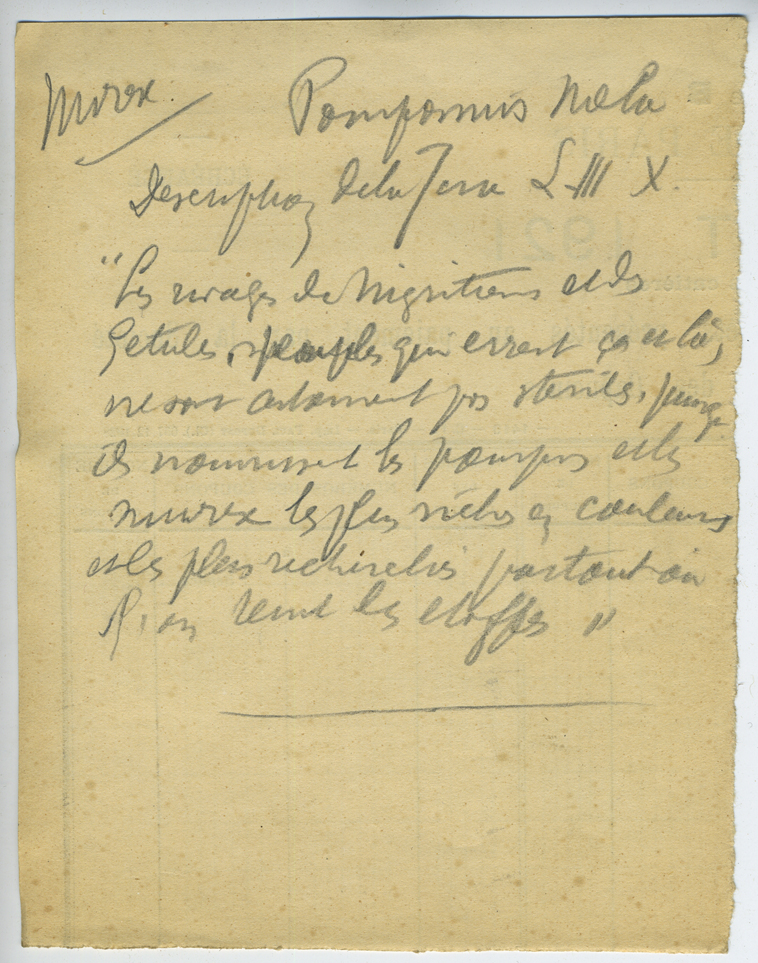 Murex
Pomponius Mela
Description de la Terre L III X.
"Les rivages de Nigritiens et des
Getules, peuples qui errent ça et là,
ne sont certainement pas steriles, puisque
ils nourrissent les pourpres et les
murex les plus riches en couleurs
et les plus recherchés partout où
l'on teint les etoffes "